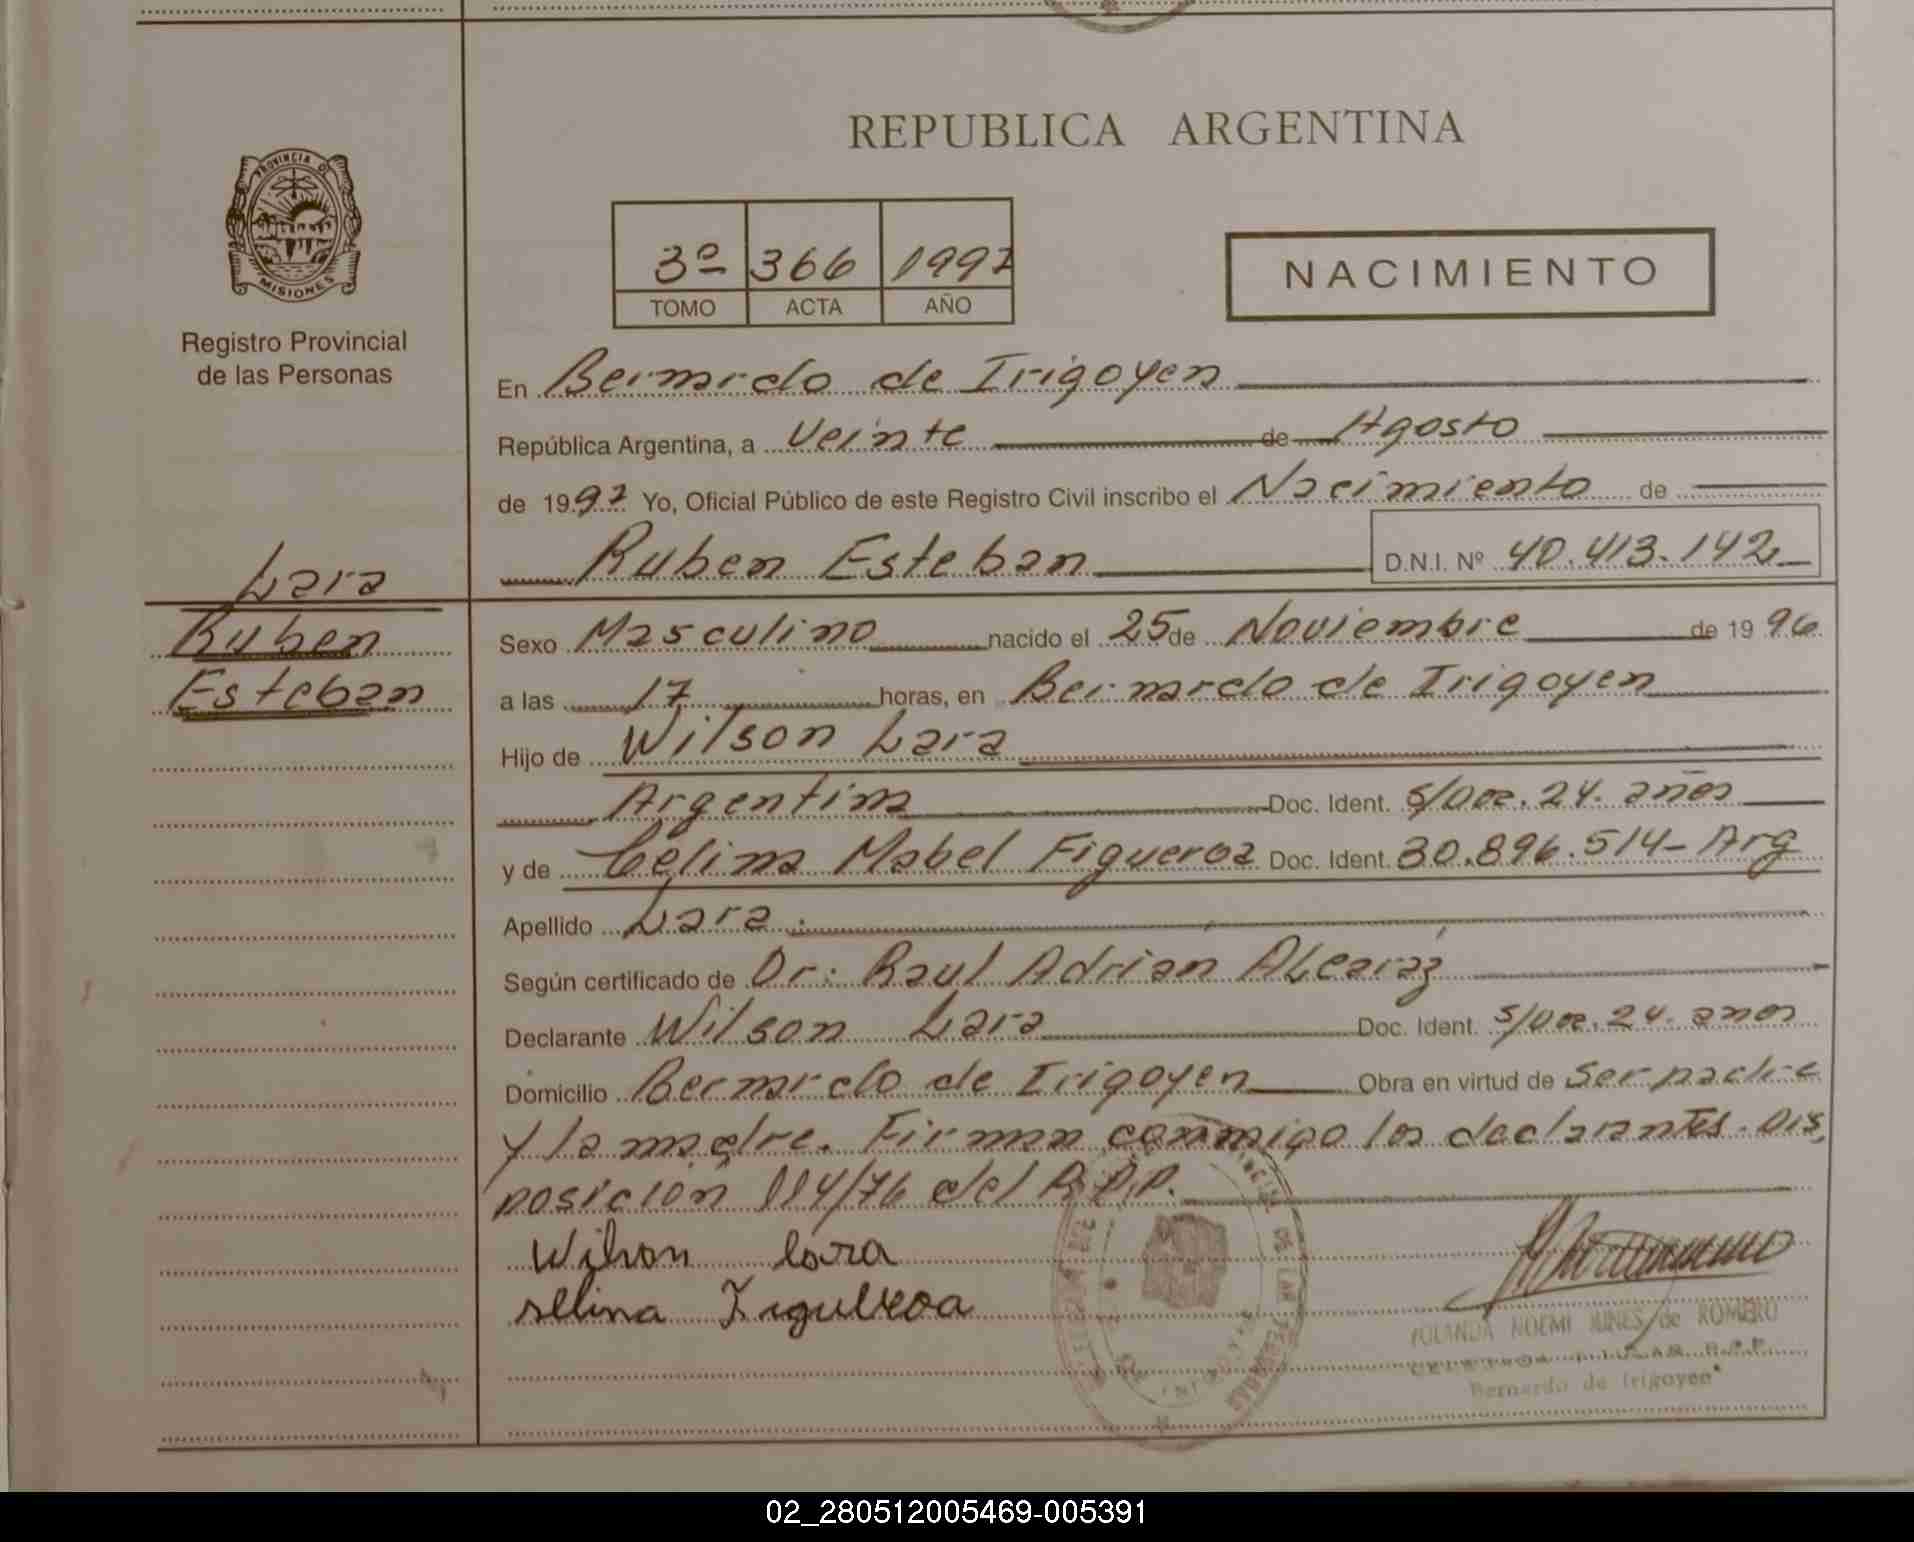 REPUBLICA ARGENTINA
PROVINCIA D
MISIONES
Registro Provincial
de las Personas
3º 366 1997
TOMO ACTA AÑO
NACIMIENTO
En Bernardo de Irigoyen
República Argentina, a Veinte de Agosto
de 1997 Yo, Oficial Público de este Registro Civil inscribo el Nacimiento de
Ruben Esteban D.N.I. Nº 40.413.142
Lara
Ruben
Esteban
Sexo Masculino nacido el 25 de Noviembre de 1996
a las 17 horas, en Bernardo de Irigoyen
Hijo de Wilson Lara
Argentina Doc. Ident. S/Doc. 24. años
y de Celina Mabel Figueroa Doc. Ident. 30.896.514- Arg
Apellido Lara.
Según certificado de Dr: Raul Adrián Alcaraz
Declarante Wilson Lara Doc. Ident. S/Doc. 24. años
Domicilio Bernardo de Irigoyen Obra en virtud de Ser padre
y la madre. Firman conmigo los declarantes. Dis
posición 114/76 del R.P.P.
Wilson lara
selina Figueroa
YOLANDA NOEMI de ROMERO
R.P.P.
Bernardo de Irigoyen
02_280512005469-005391